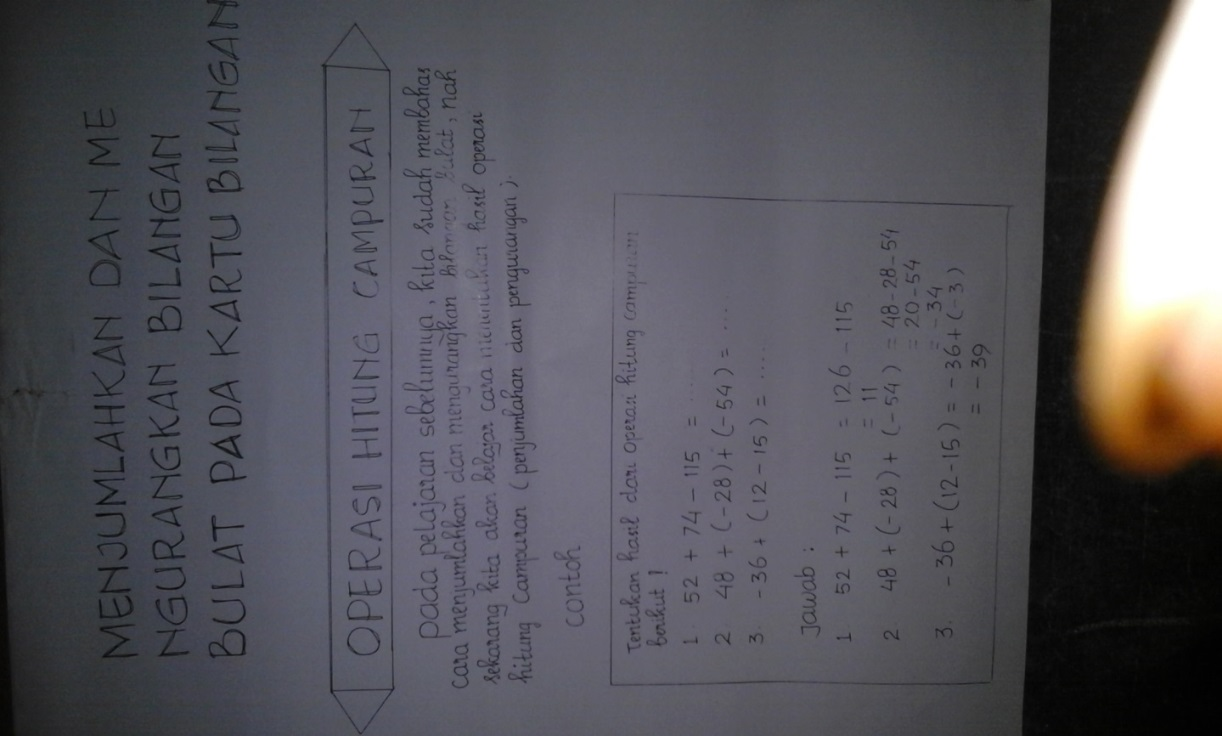 MENJUMLAHKAN DAN ME
NGURANGKAN BILANGAN
BULAT PADA KARTU BILANGAN
OPERASI HITUNG CAMPURAN
pada pelajaran sebelumnya, kita sudah membahas
cara menjumlahkan dan mengurangkan bilangan bulat, nah
sekarang kita akan belajar cara menentukan hasil operasi
hitung Campuran (penjumlahan dan pengurangan).
contoh
Tentukan hasil dari operasi hitung campuran
berikut!
1. 52 + 74 - 115 = ......
2 48 + (-28) + (-54) = ....
3. -36 + (12 - 15) = .....
Jawab :
1 52 + 74 - 115 = 126 - 115
= 11
2 48 + (-28) + (-54) = 48-28-54
= 20-54
= -34
3. -36 + (12-15) = -36 + (-3)
= -39